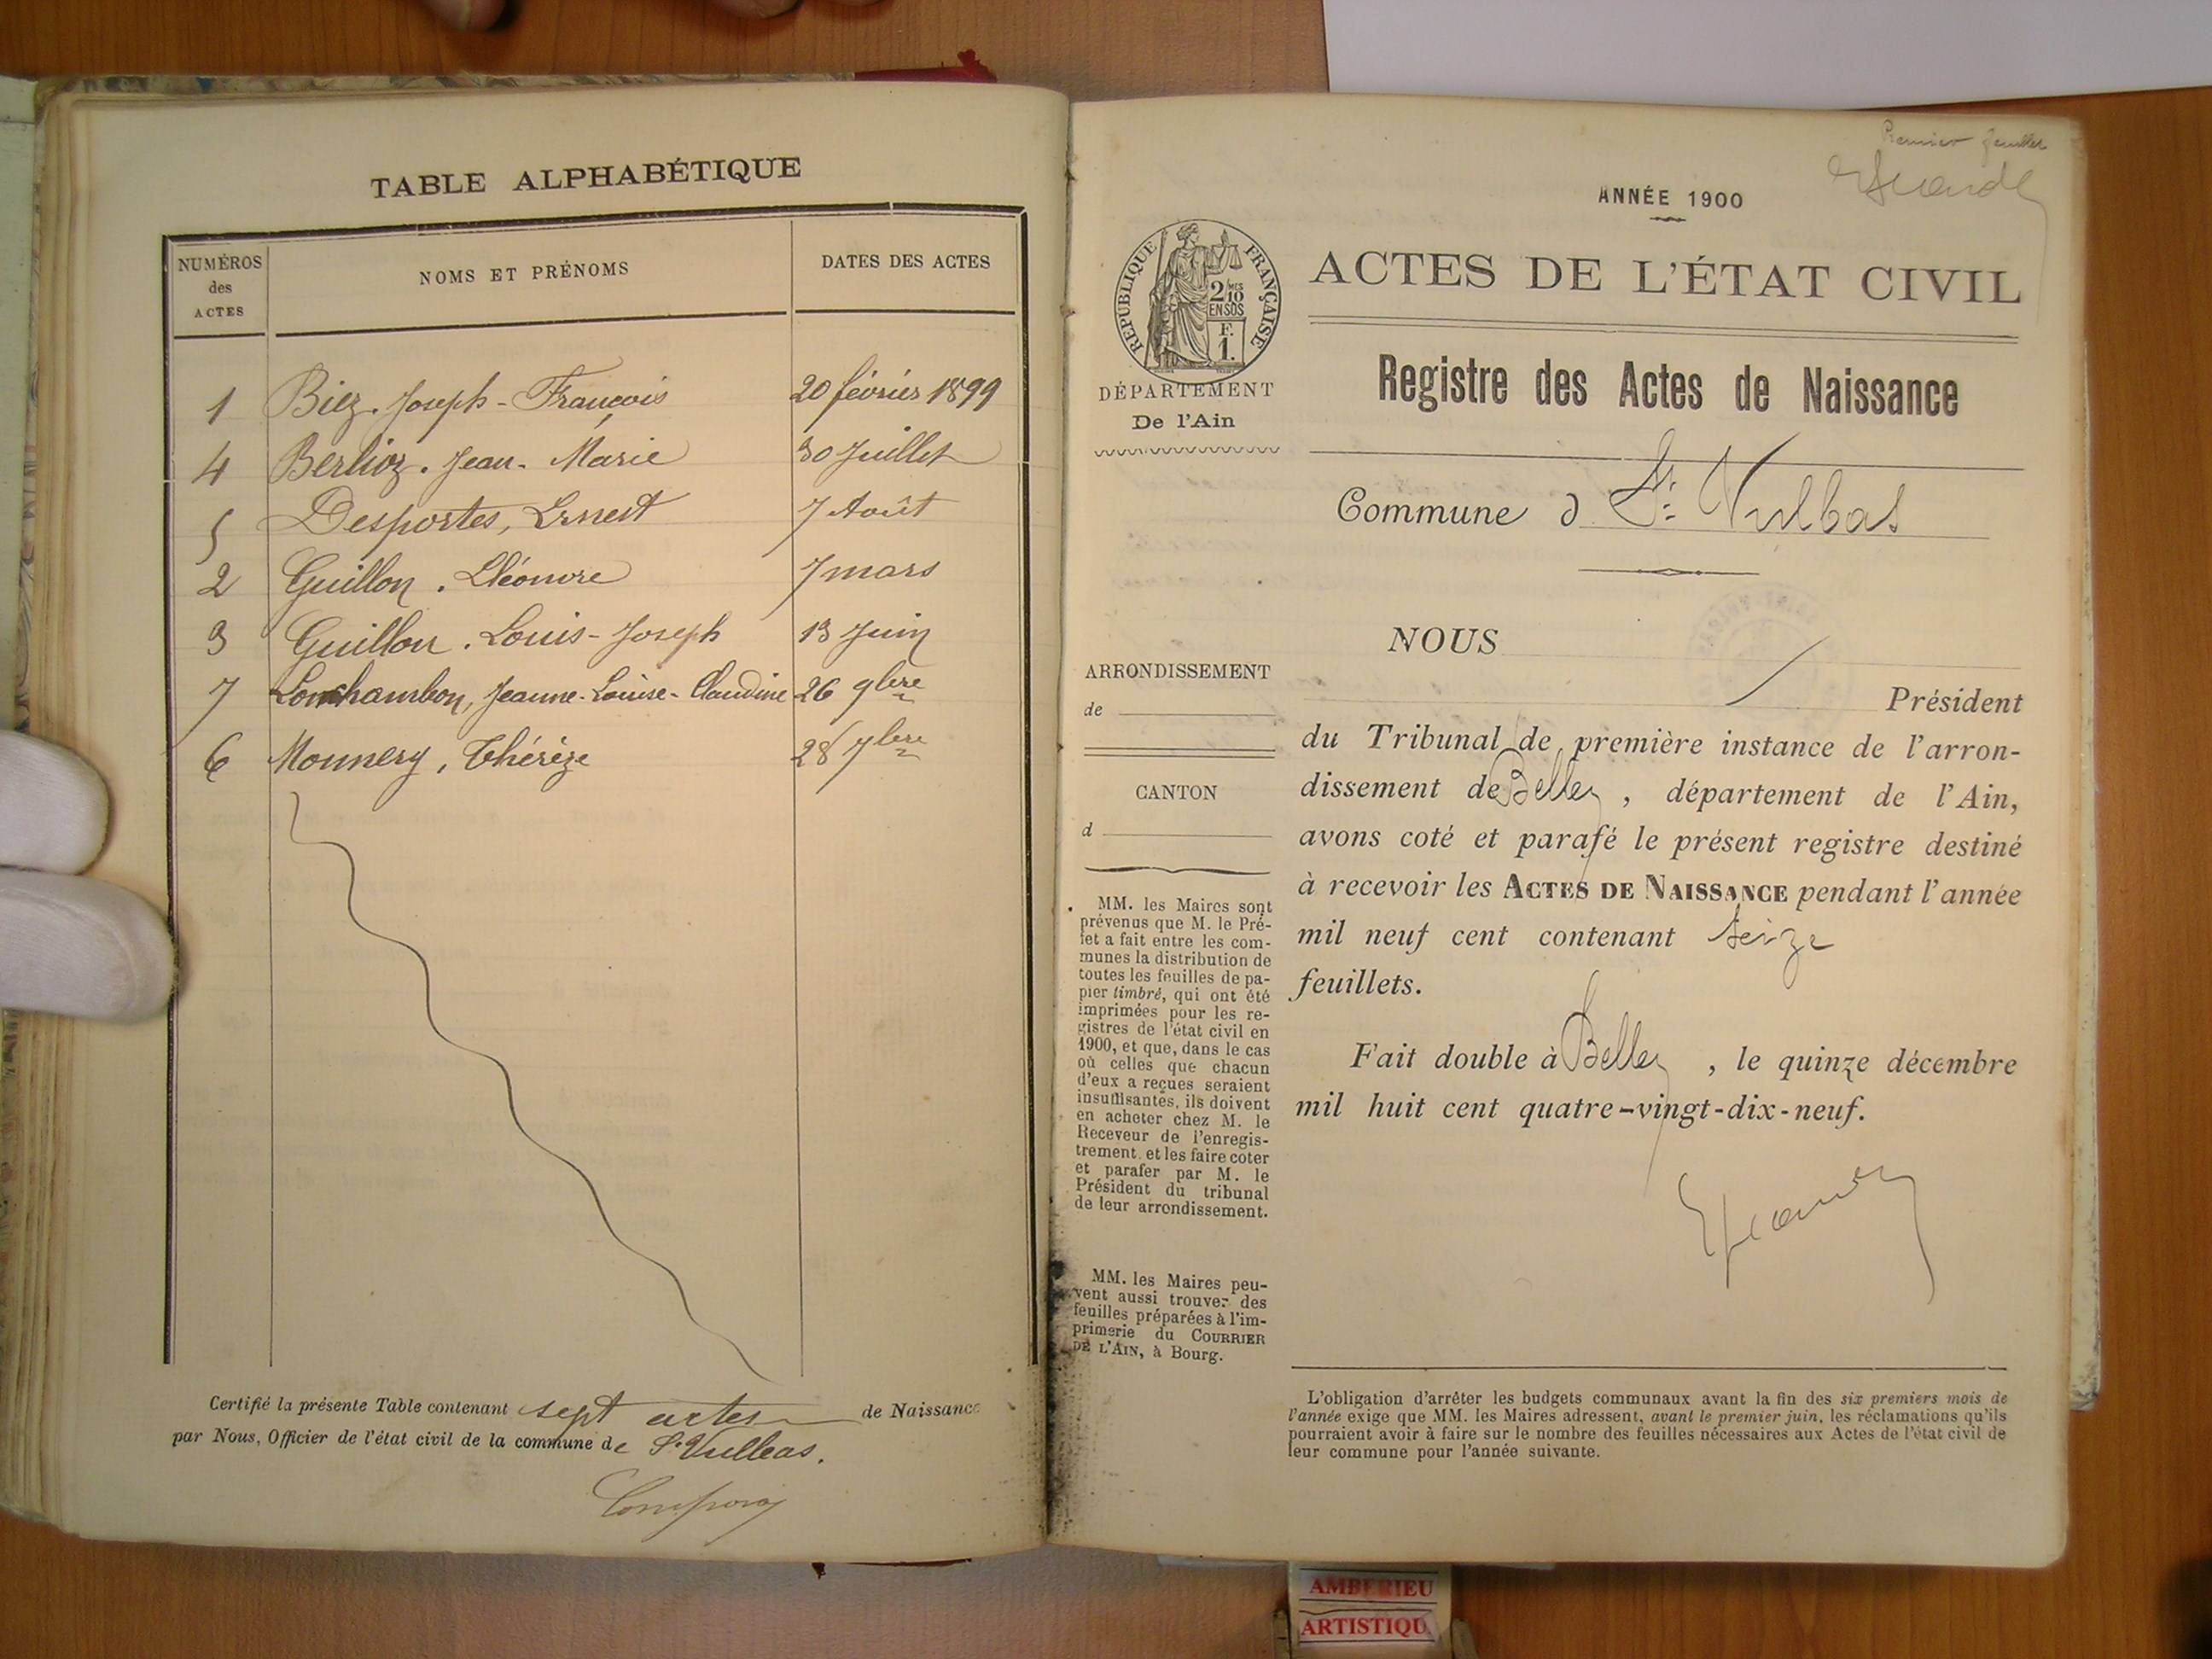 TABLE ALPHABÉTIQUE
NUMÉROS des ACTES
NOMS ET PRÉNOMS
DATES DES ACTES
1 Biez. Joseph-François 20 février 1899
4 Berlioz. Jean-Marie 30 Juillet
5 Desportes, Ernest 7 Août
2 Guillon. Eléonore 7 mars
3 Guillon. Louis-Joseph 13 Juin
7 Lonchambon, Jeanne-Louise-Claudine 26 9bre
6 Monnery, Thérèze 28 7bre
Certifié la présente Table contenant sept actes de Naissance
par Nous, Officier de l'état civil de la commune de St Vulbas.
Premier feuillet
ANNÉE 1900
ACTES DE L'ÉTAT CIVIL
RÉPUBLIQUE FRANÇAISE
2/10MES
EN SUS
F.
1.
DÉPARTEMENT
De l'Ain
Registre des Actes de Naissance
Commune d St Vulbas
ARRONDISSEMENT
de
CANTON
d
MM. les Maires sont
prévenus que M. le Pré-
fet a fait entre les com-
munes la distribution de
toutes les feuilles de pa-
pier timbré, qui ont été
imprimées pour les re-
gistres de l'état civil en
1900, et que, dans le cas
où celles que chacun
d'eux a reçues seraient
insuffisantes, ils doivent
en acheter chez M. le
Receveur de l'enregis-
trement, et les faire coter
et parafer par M. le
Président du tribunal
de leur arrondissement.
MM. les Maires peu-
vent aussi trouver des
feuilles préparées à l'im-
primerie du COURRIER
DE L'AIN, à Bourg.
NOUS
Président
du Tribunal de première instance de l'arron-
dissement de Belley, département de l'Ain,
avons coté et parafé le présent registre destiné
à recevoir les ACTES DE NAISSANCE pendant l'année
mil neuf cent contenant seize
feuillets.
Fait double à Belley, le quinze décembre
mil huit cent quatre-vingt-dix-neuf.
L'obligation d'arrêter les budgets communaux avant la fin des six premiers mois de
l'année exige que MM. les Maires adressent, avant le premier juin, les réclamations qu'ils
pourraient avoir à faire sur le nombre des feuilles nécessaires aux Actes de l'état civil de
leur commune pour l'année suivante.
AMBERIEU
ARTISTIQU